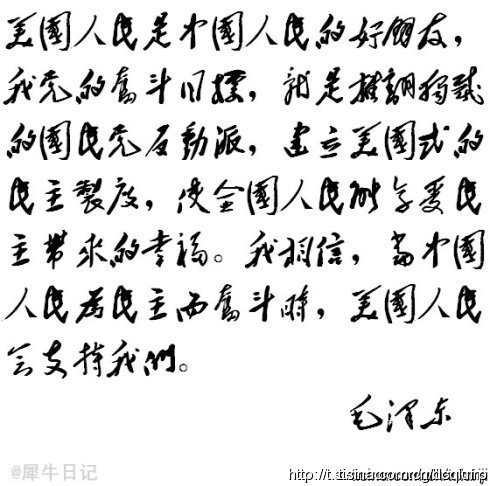 美國人民是中國人民的好朋友，
我党的奮斗目標，就是推翻獨裁
的國民党反動派，建立美國式的
民主製度，使全國人民能享受民
主帶來的幸福。我相信，當中國
人民為民主而奮斗時，美國人民
会支持我們。
毛澤东
@犀牛日记
http://t.